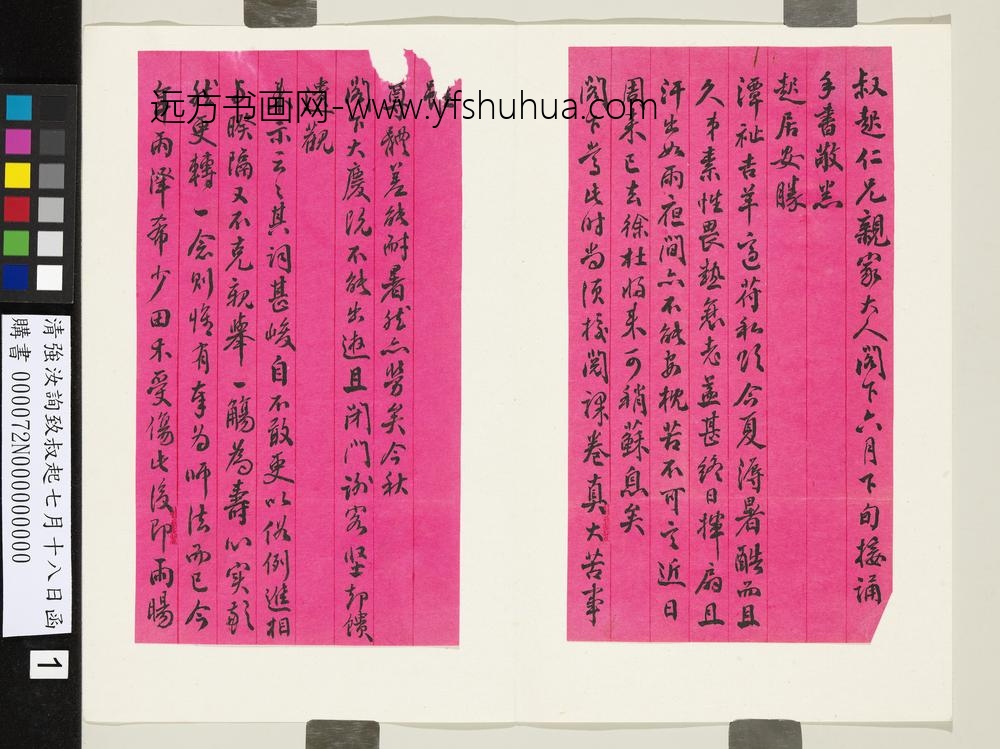 叔起仁兄親家大人閣下六月下旬接誦
手書敬悉
起居安勝
潭祉吉羊定符私頌今夏溽暑酷而且
久弟素性畏熱衰老益甚終日揮扇且
汗出如雨夜間亦不能安枕苦不可言近日
周來已去徐杜將來可稍蘇息矣
閣下當此时尚須校閱課卷真大苦事
賢體差能耐暑然亦勞矣今秋
閣下大慶既不能出遊且閉門謝客坚却饋
壽觀
示云云其詞甚峻自不敢更以俗例進相
與睽隔又不克親舉一觴為壽心实歉
然更轉一念則惟有奉为师法而已今
年雨泽希少田禾受傷此後即雨暘
远方书画网-www.yfshuhua.com
清強汝詢致叔起七月十八日函
購書 0000072N000000000
1